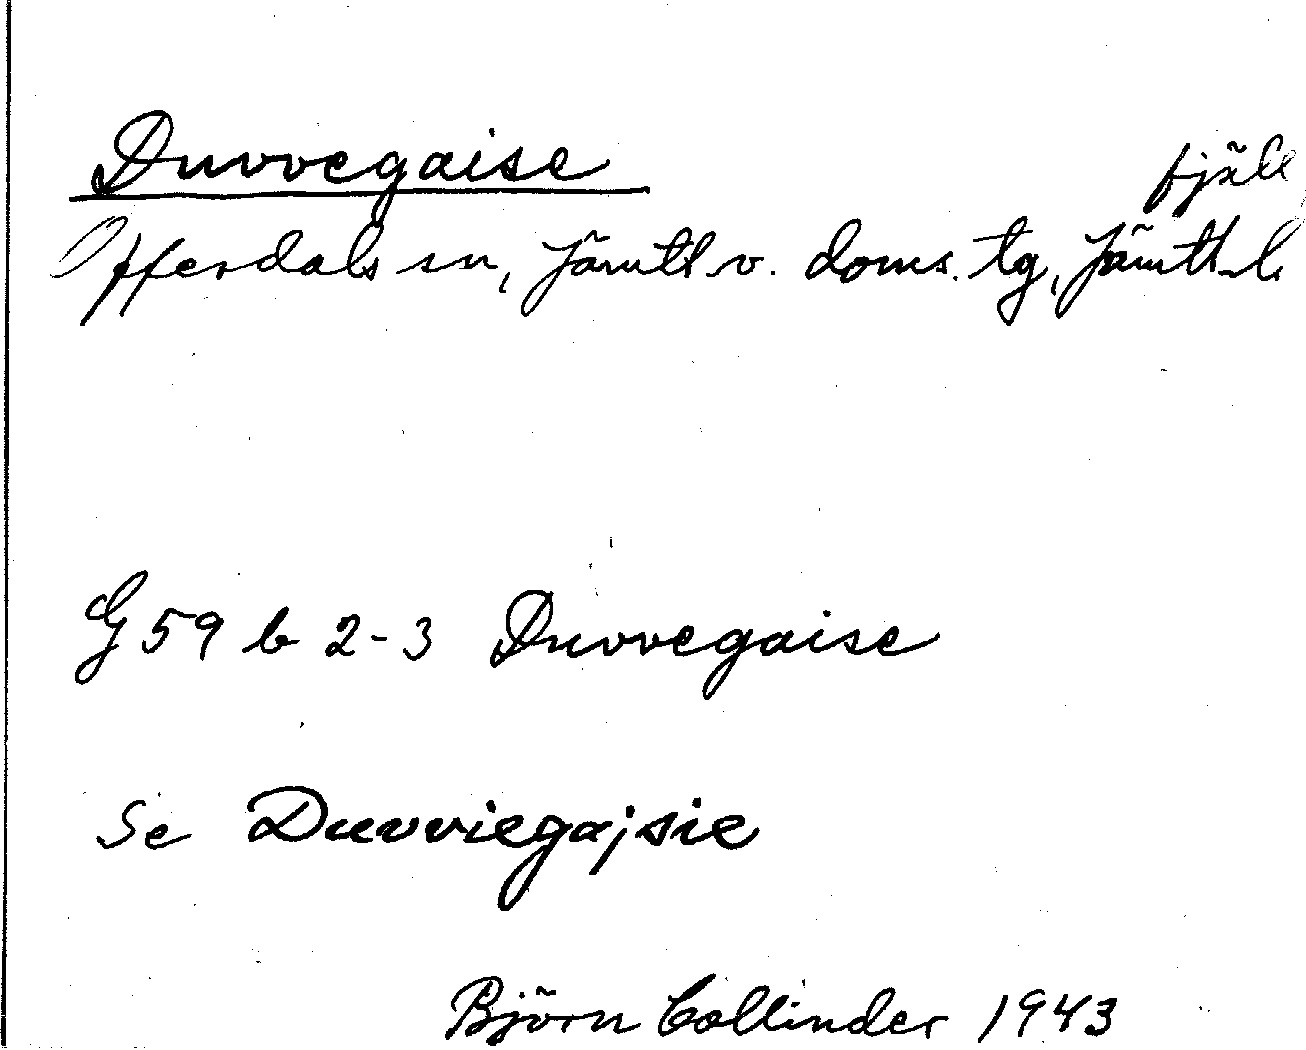 Duvvegaise
fjäll
Offerdals sn, Jämtl v. doms. tg, Jämtl. l.
G 59 b 2-3 Duvvegaise
Se Duvviegajsie
Björn Collinder 1943